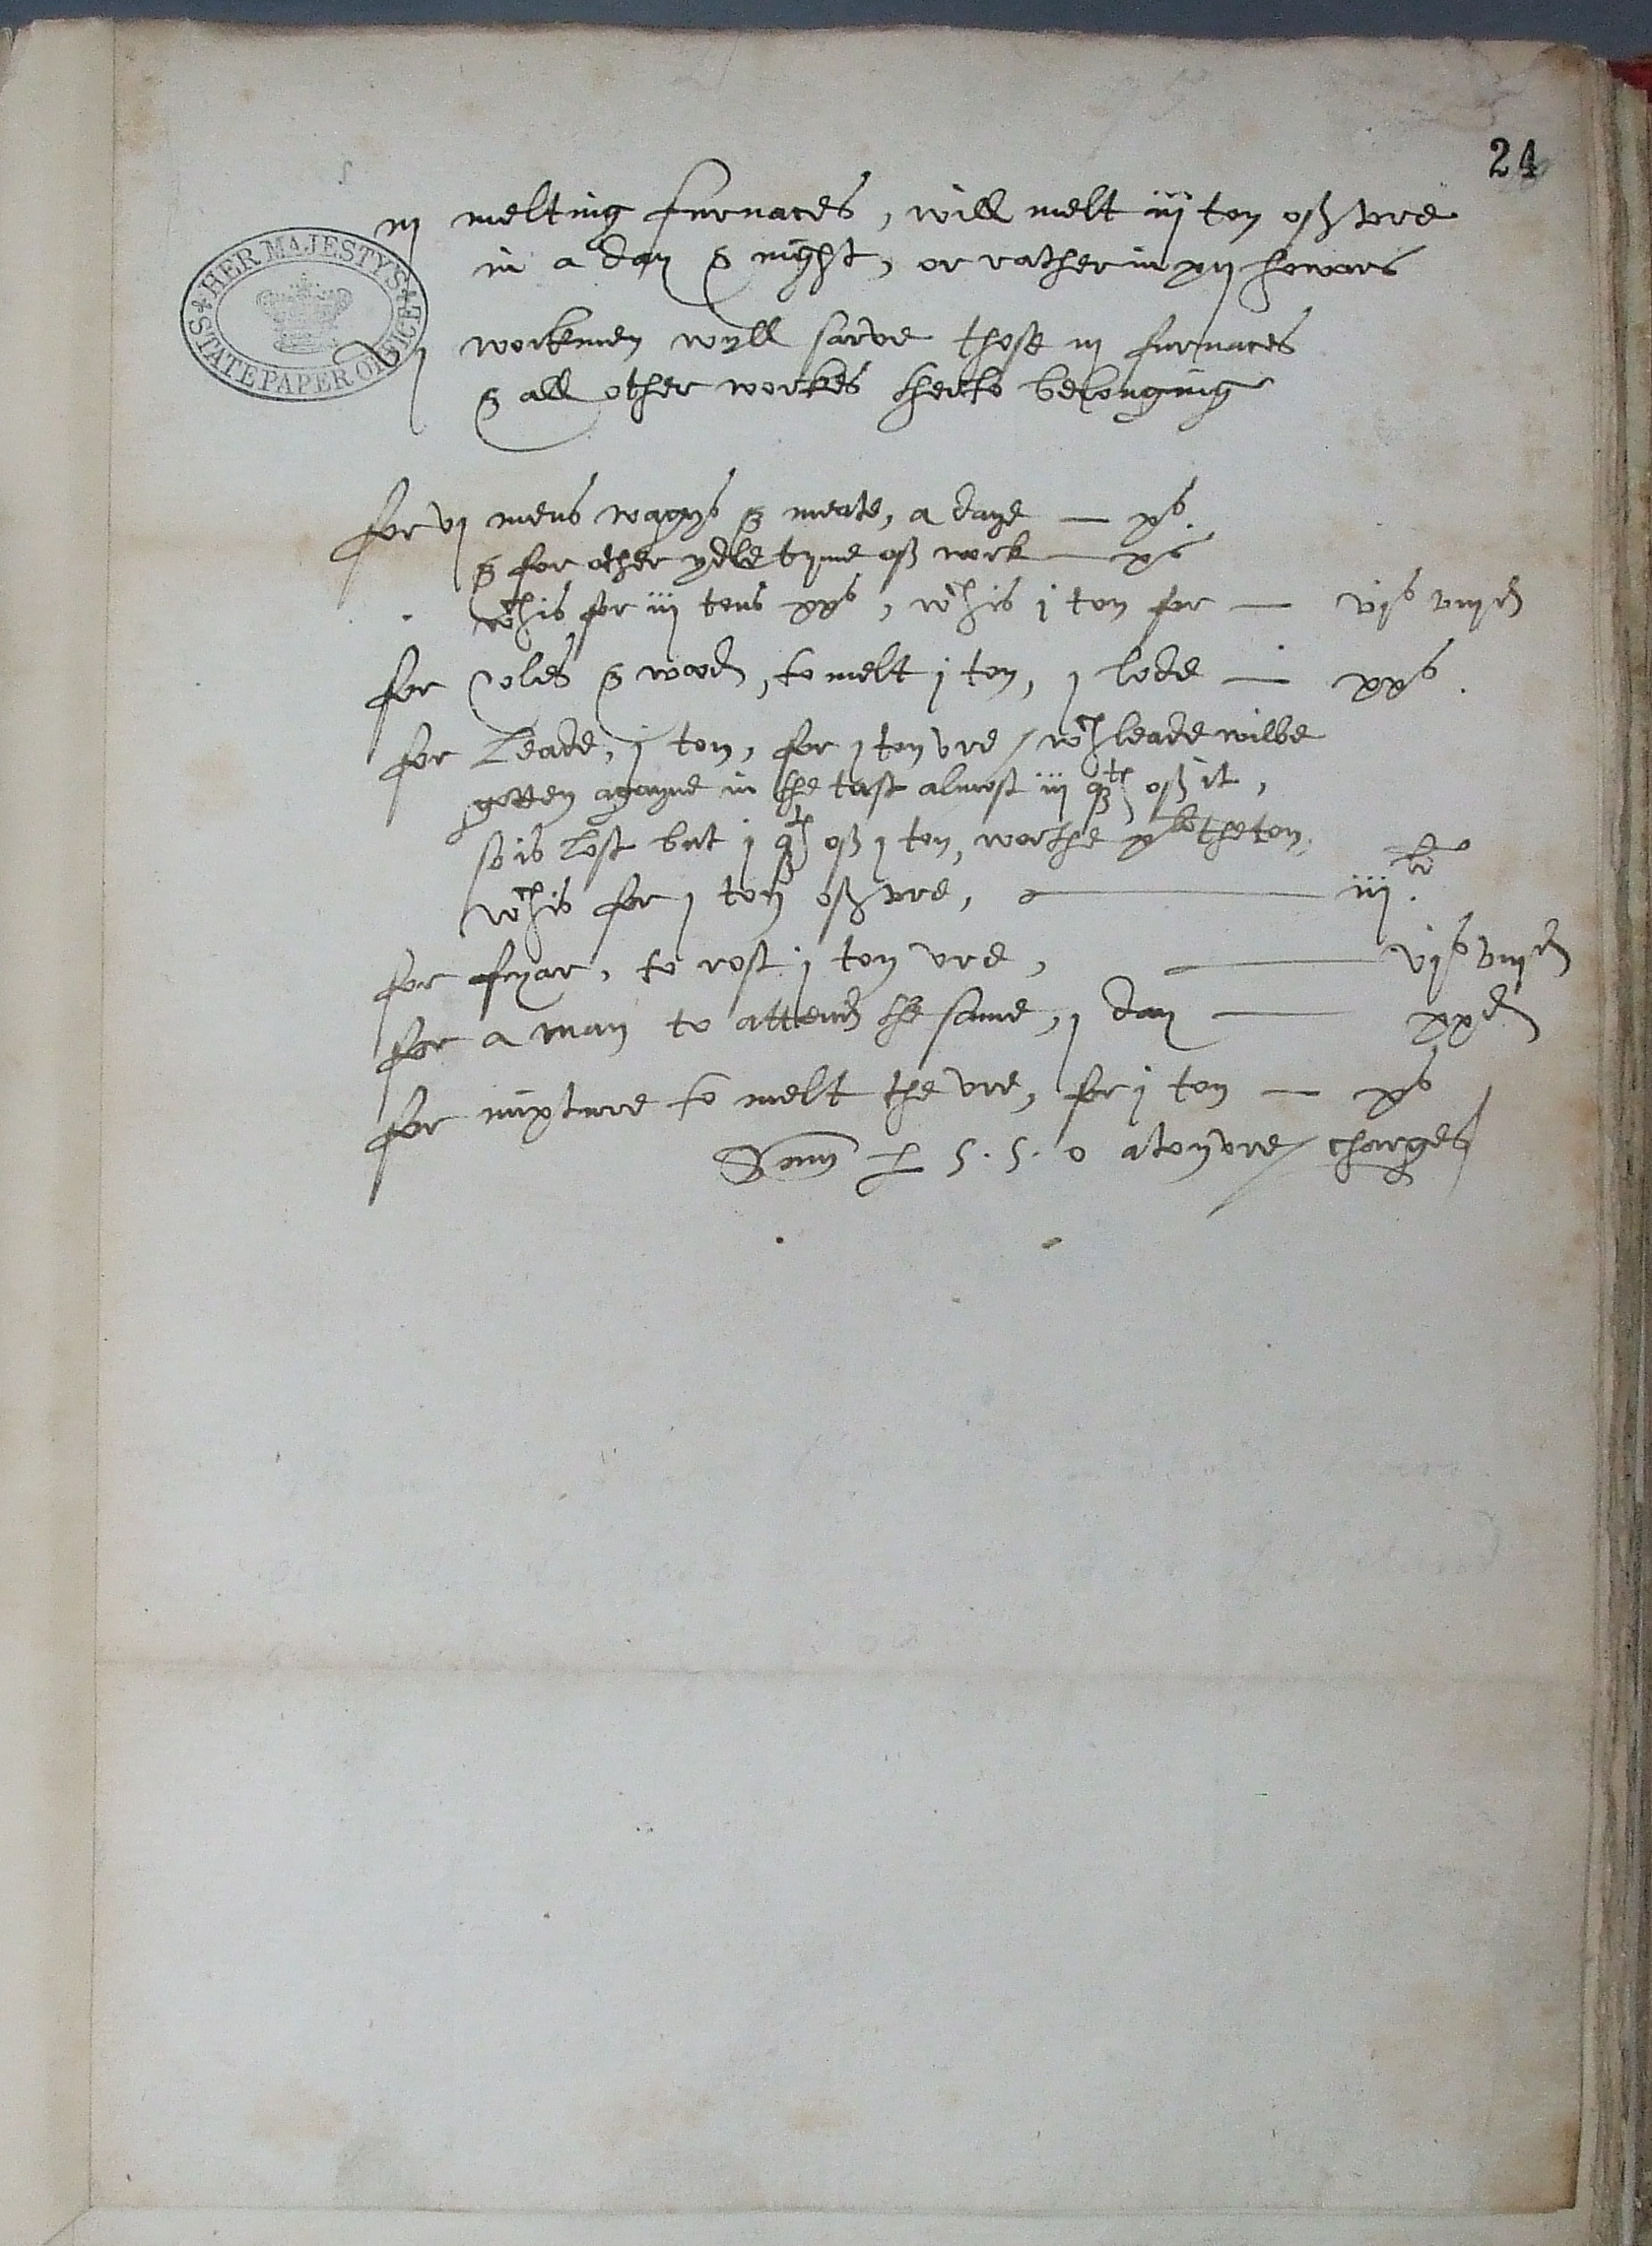 24
HER MAJESTY'S STATE PAPER OFFICE
iij melting furnaces, will melt iij ton off vre
in a day & night, or rather in xij howars
vj workmen wyll sarve those iij furnaces
& all other workes therto belonging
for vj mens wagys & meate, a daye — xs.
& for other ydle tyme off work — xs
wch is for iij tons xxs, wch is j ton for — vjs viijd
for Coles & wood, to melt j ton, j lode — xxs.
for Leade, j ton, for j ton vre / wch leade wilbe
gotten agayne in the test almost iij qtr off it,
so is lost but j qtr off j ton, worthe xli the ton.
wch is for j ton off vre, — iijli.
for fyar, to rost j ton vre, — vjs viijd
for a man to attend the same, j day — xxd
for mixture to melt the vre, for j ton — xs
Som £ 5. 5. 0 a ton vre / charges